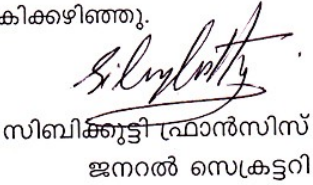 കിക്കഴിഞ്ഞു.
സിബിക്കുട്ടി ഫ്രാൻസിസ്
ജനറൽ സെക്രട്ടറി